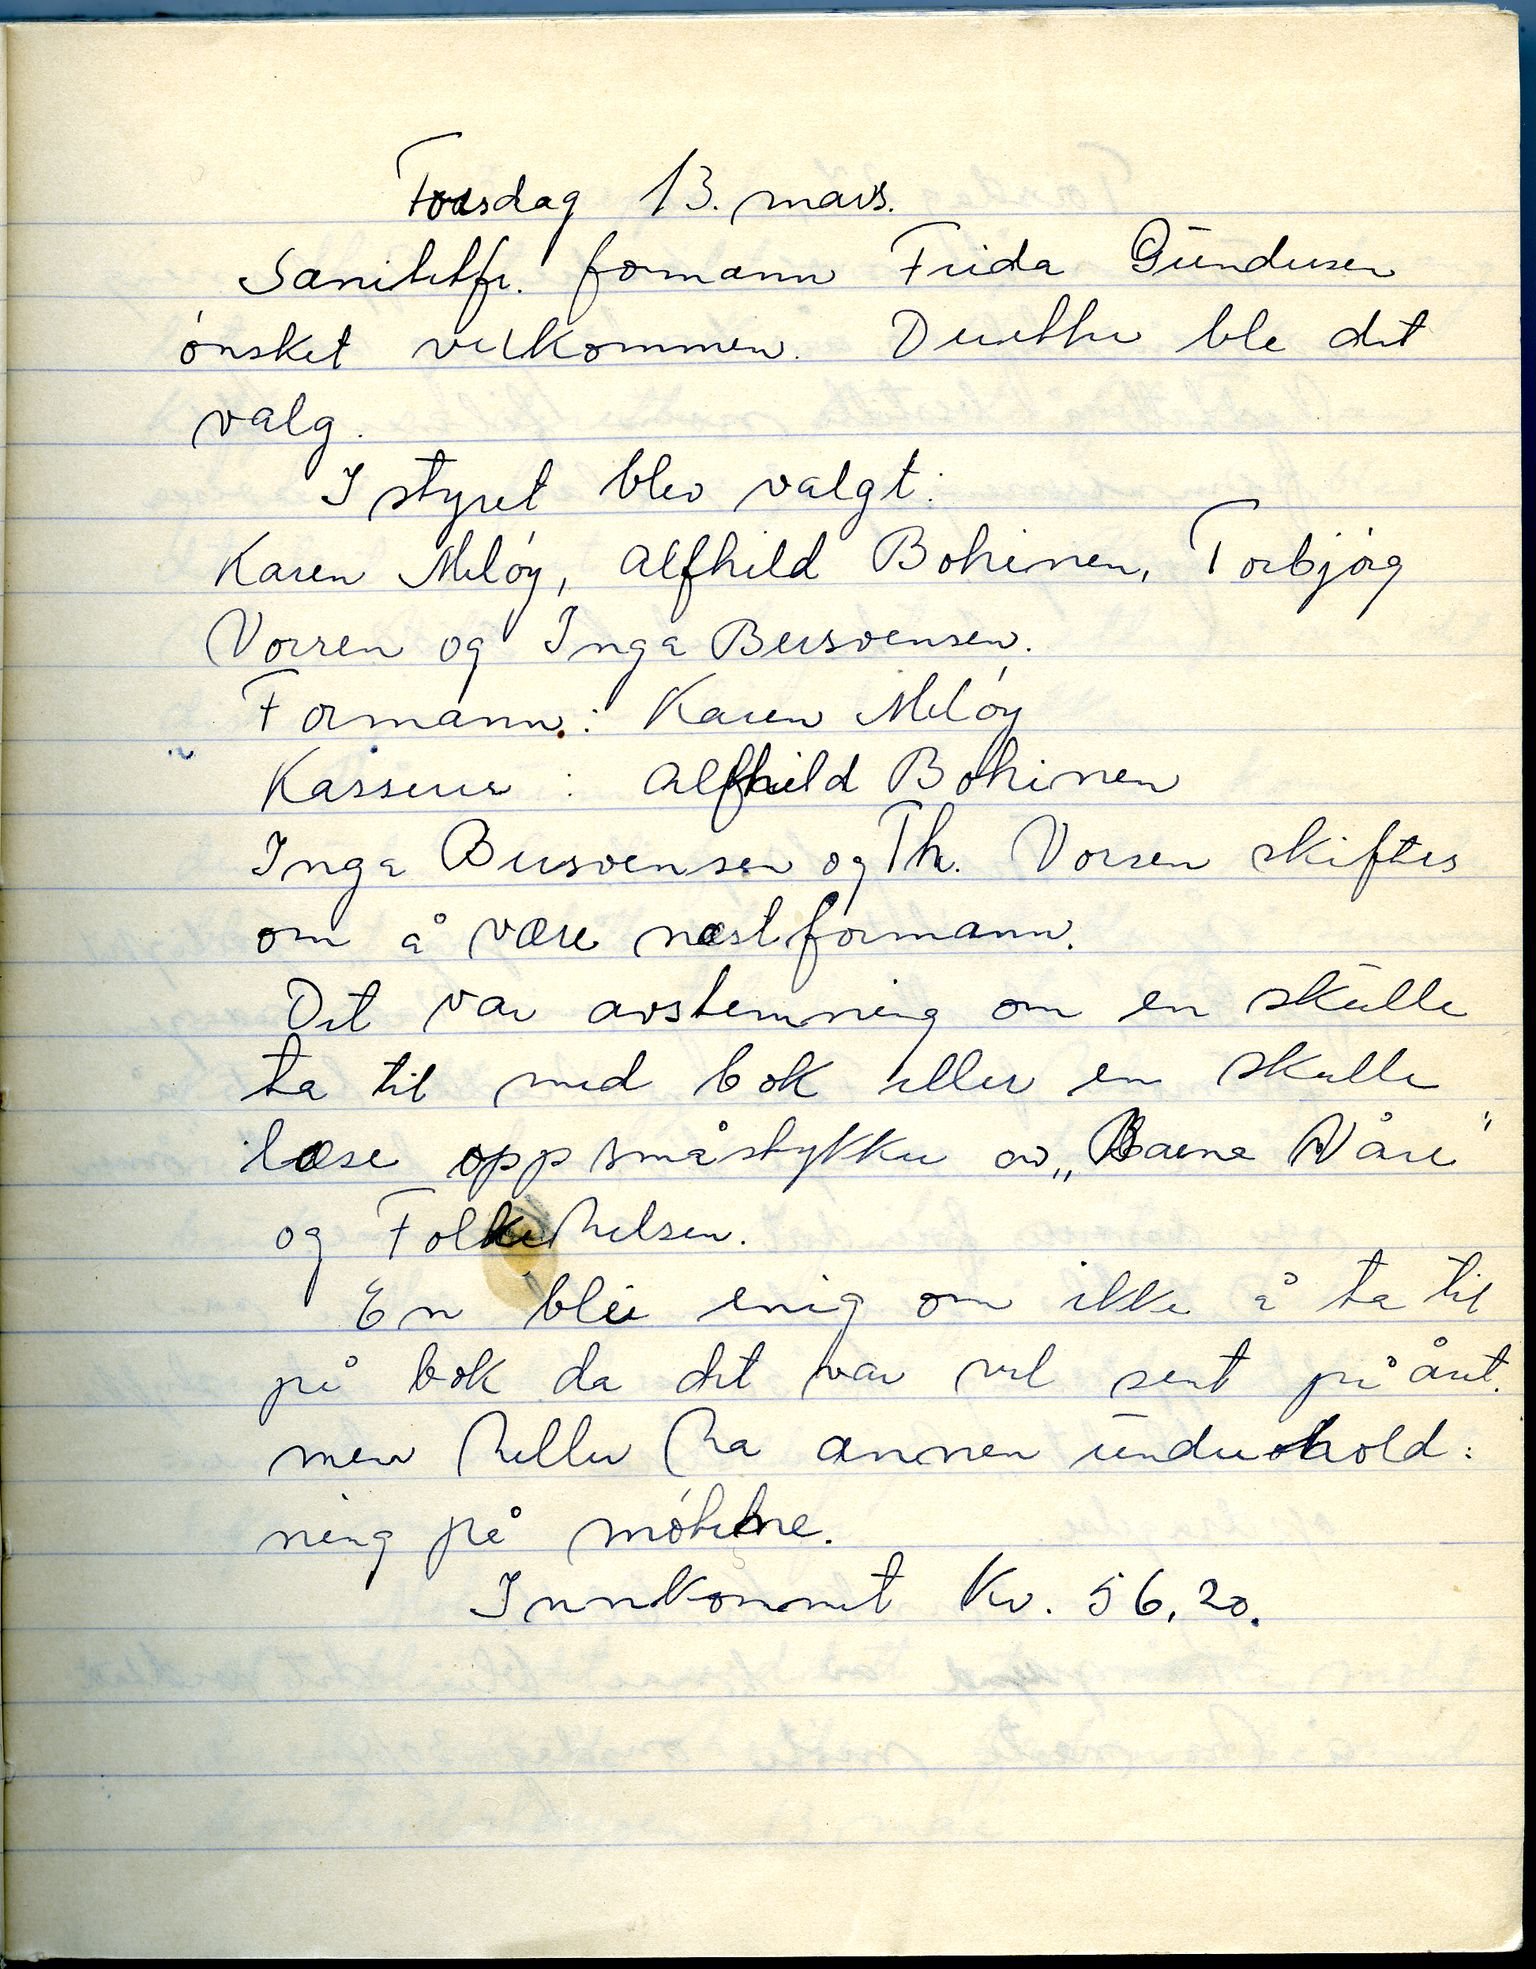 Torsdag 13. mars.
Sanitetfr. formann Frida Gundersen
ønsket velkommen. Deretter ble det
valg.
I styret blev valgt:
Karen Meløy, Alfhild Bohinen, Torbjørg
Vorren og Inga Bersvensen.
Formann: Karen Meløy
Kasserer : Alfhild Bohinen
Inga Bersvensen og Th. Vorren skiftes
om å være næstformann.
Det var avstemning om en skulle
ta til med bok eller en skulle
læse opp småstykker av „Barna Våre"
og Folkehelsen.
En blei enig om ikke å ta til
på bok da det var vel sent på året.
men heller ha annen underhold:
ning på møtene.
Innkommet Kr. 56,20.